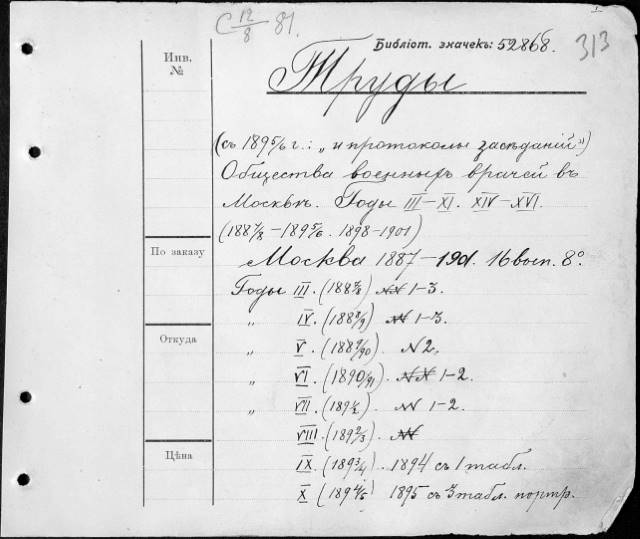 С 12/8 81.
Библіот. значекъ: 52868. 313
Инв. №
Труды
(съ 1895/6 г.: „и протоколы засѣданій")
Общества военныхъ врачей въ
Москвѣ. Годы III–XI. XIV–XVI.
(1887/8–1895/6. 1898-1901)
По заказу
Москва 1887–1901. 16 вып. 8°.
Годы III. (1887/8) №№ 1-3.
„ IV. (1888/9) № 1-3.
Откуда
„ V. (1889/90) N 2.
„ VI. (1890/91) №№ 1-2.
„ VII. (1891/2) № 1-2.
VIII. (1892/3) №
Цѣна
IX. (1893/4) 1894 съ 1 табл.
X (1894/5) 1895 съ 3 табл. портр.